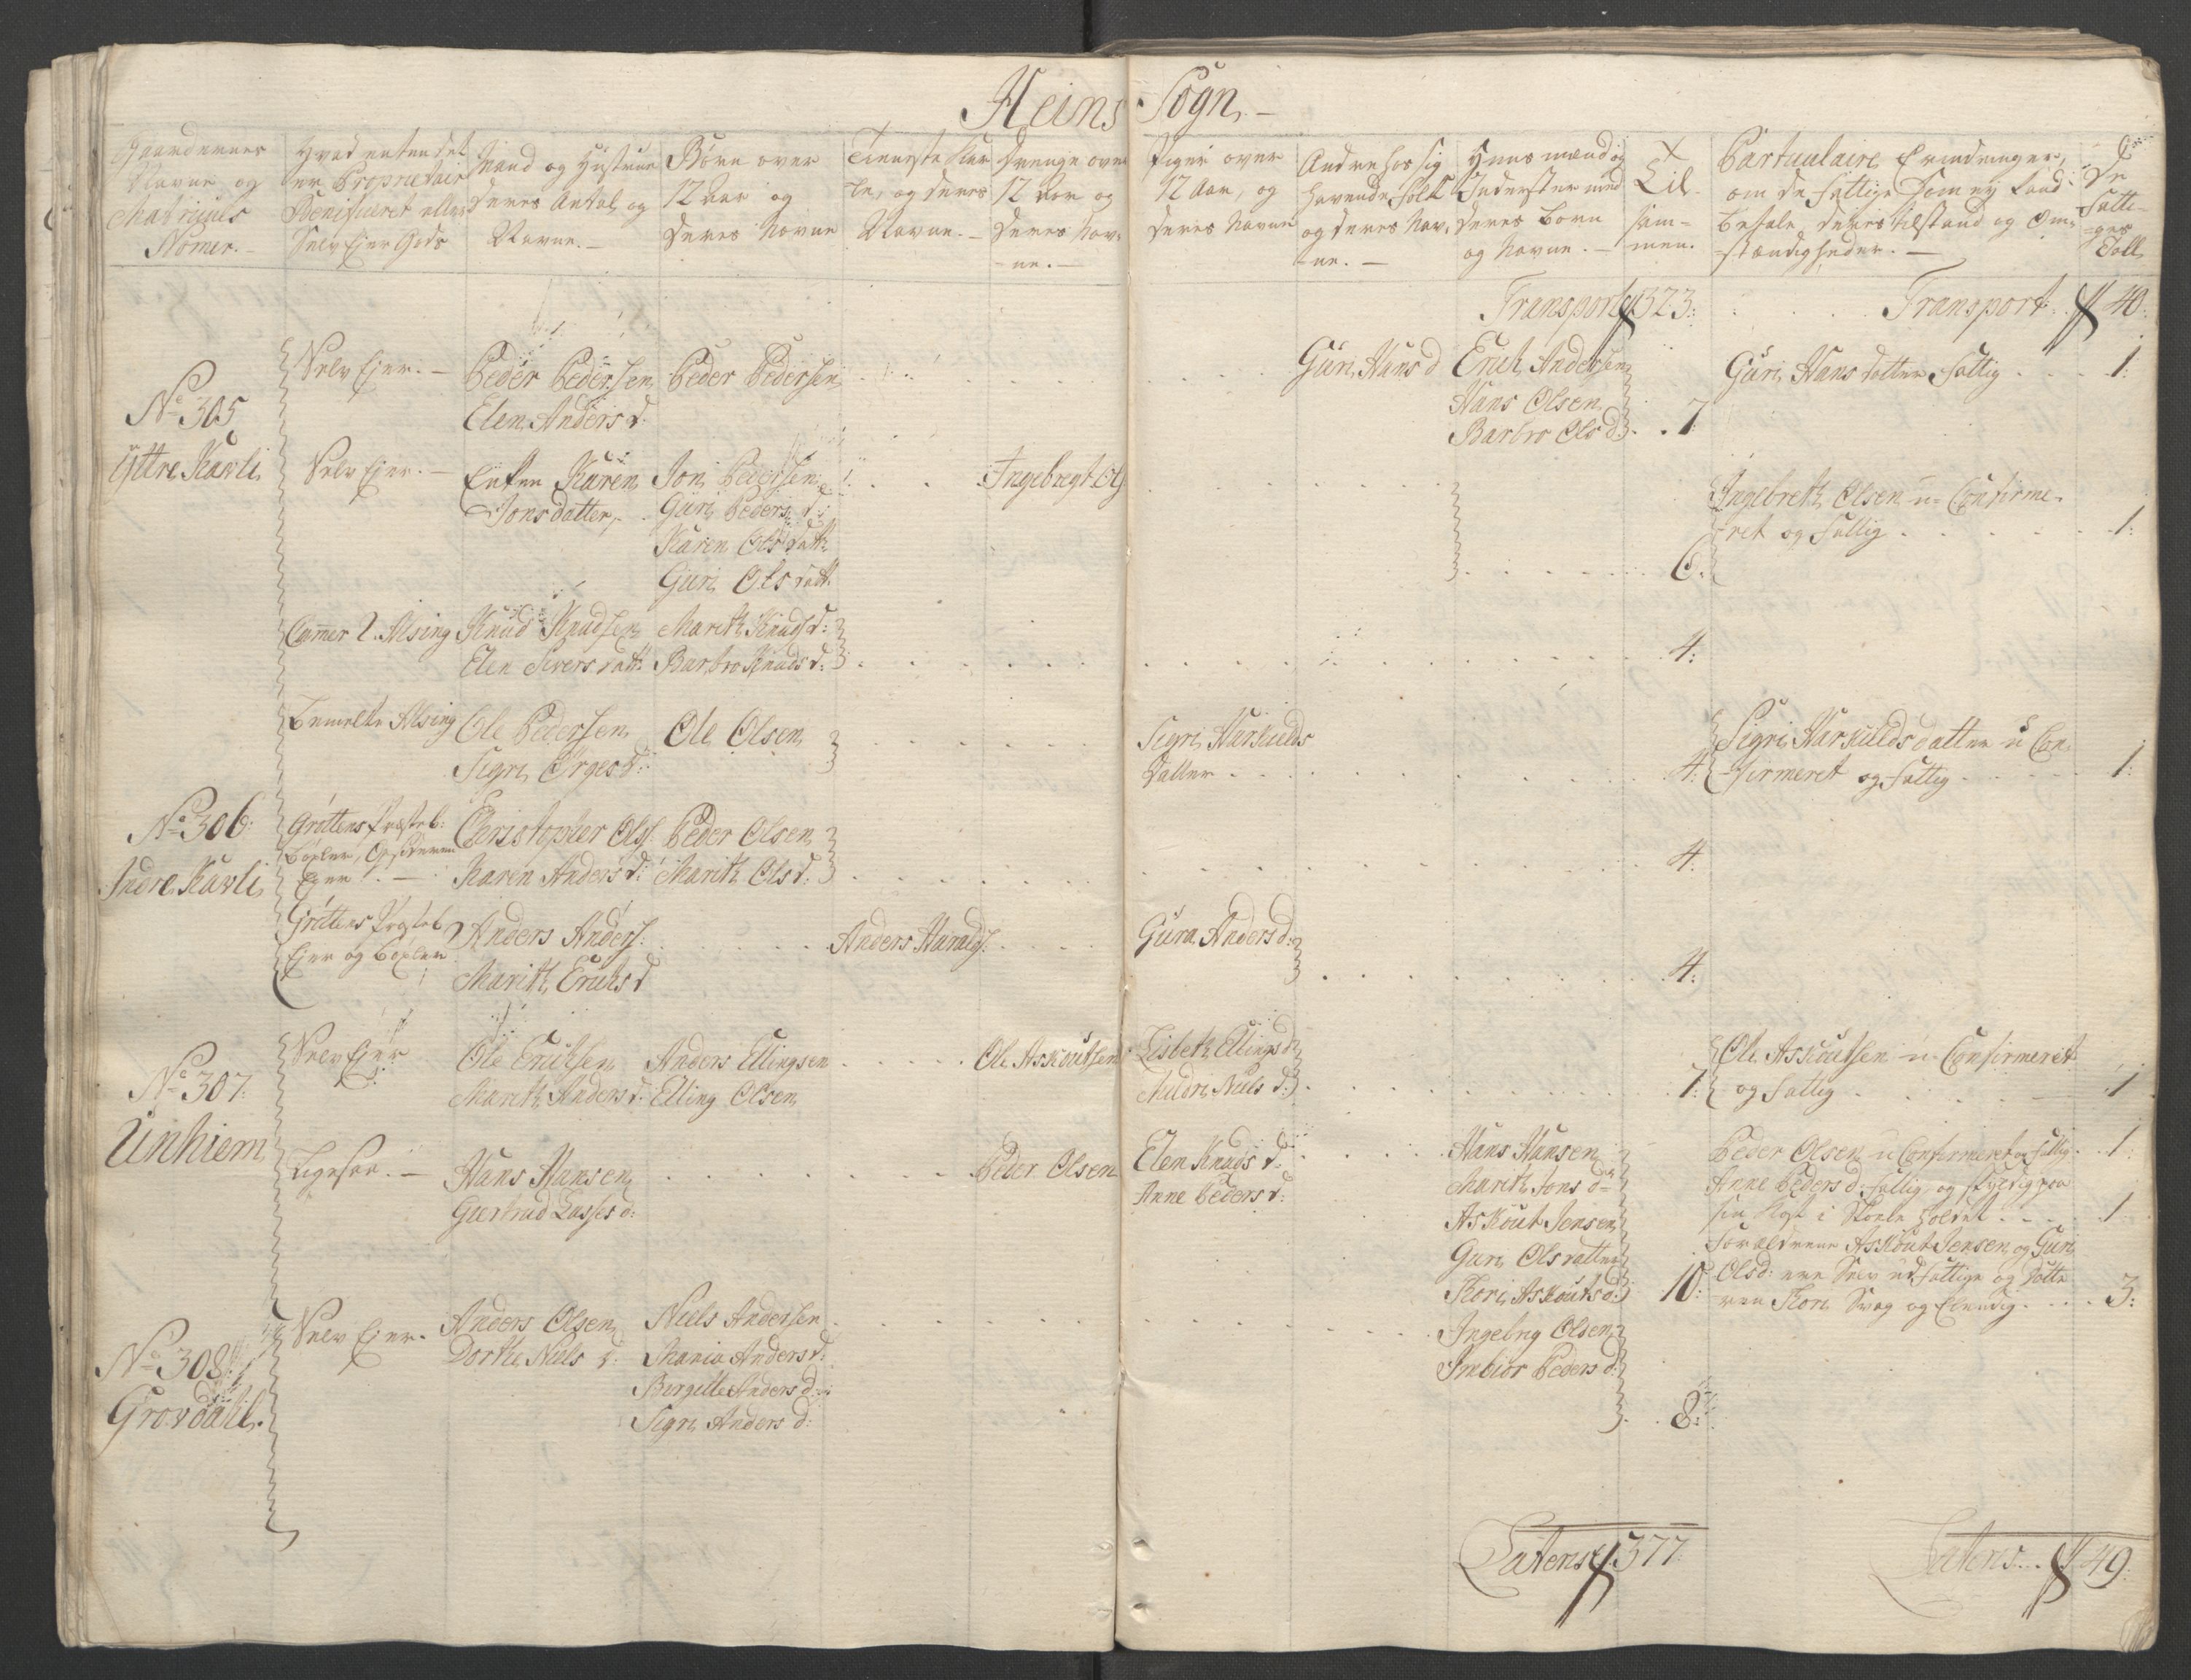 Heins Sogn. –
Gaardernes Navne og Matriculs Nomer. –
Hvad enten det er Proprietair Benificeret eller Selv Ejer Gods
Mand og Hustrue deres Antal og Navne. –
Børn over 12 Aar og deres Navne
Tieneste Kar le, og deres Navne. –
Drenge over 12 Aar og deres Nav- ne. –
Piger over 12 Aar, og deres Navne
Andre hos sig havende Folk og deres Nav- ne. –
Huusmænd og Inderster med deres Børn og Navne. –
Til sam- men.
Particulaire Erindringer, om de Fattige som ej kand betale deres tilstand og Om- stændigheder. –
De Fatti- ges Tall
Transport 1323:
Transport 40:
No 305
Yttre Kavli
Selv Ejer. –
Peder Pedersen
Elen Anders d:
Peder Pedersen
Guri Hans d
Erich Andersen
Hans Olsen
Barbro Ols d:
7
Guri Hans datter fattig
1:
Selv Ejer. –
Enken Karen
Jonsdatter,
Jon Pedersen
Guri Peders d:
Karen Ols datt:
Guri Ols datt.
Ingebregt Ols
6.
Ingebreth Olsen u-Confirme-
ret og fattig
1:
Cammer R. Alsing
Knud Knudsen
Elen Sivers datt:
Marith Knuds d:
Barbro Knuds d:
4:
bemelte Alsing
Ole Pedersen
Sigri Ørges d:
Ole Olsen
Sigri Harkields
datter
4:
Sigri Harkields datter u Con-
firmeret og fattig
1:
No 306:
Indre Kavli
Grøttens Præsteb:
bøxler, Opsidderen
Ejer. –
Christopher Ols
Karen Anders d:
Peder Olsen
Marith Ols d:
4:
Grøttens Præsteb
Ejer og bøxler
Anders Anders:
Marith Erichs d
Anders Haralds:
Gura Anders d:
4:
No 307:
Unhiem
Selv Ejer
Ole Erichsen
Marith Anders d:
Anders Ellingsen
Elling Olsen
Ole Askoutsen
Lisbeth Ellings d:
Mildri Niels d:
7:
Ole Askoutsen u-Confirmeret
og fattig
1
Ligesaa. –
Hans Hansen
Giertrud Lasses d:
Peder Olsen
Elen Knuds d:
Anne Peders d:
Hans Hansen
Marith Jons d
Askout Jensen
Guri Ols datter
Kori Askouts d:
10:
Peder Olsen u Confirmeret og fattig
1:
Anne Peders d: fattig og skyldig paa
1
Forældrene Askout Jensen og Guri
Ols d: ere Selv udfattige og Dotte
ren Kori Svag og Elendig
3:
No 308
Grovdahl.
Selv Ejer.
Anders Olsen
Dorthe Niels d:
Niels Andersen
Maria Anders d:
Bergitte Anders d:
Sigri Anders d:
Ingebrig Olsen
Imbior Peders d:
8:
Latens 1377:
Latens 49: